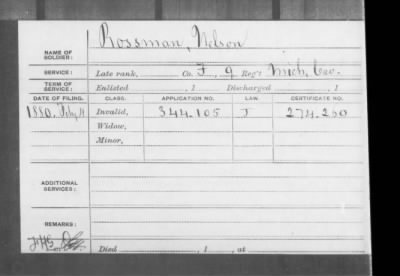 NAME OF SOLDIER: Rossman, Nelson
SERVICE: Late rank, Co. F 9 Reg't Mich. Cav.
TERM OF SERVICE: Enlisted , 1 Discharged , 1
DATE OF FILING. CLASS. APPLICATION NO. LAW. CERTIFICATE NO.
1880. Feby 4 Invalid, 344.105 J 274.260
Widow,
Minor,
ADDITIONAL SERVICES:
REMARKS:
Died , 1 , at